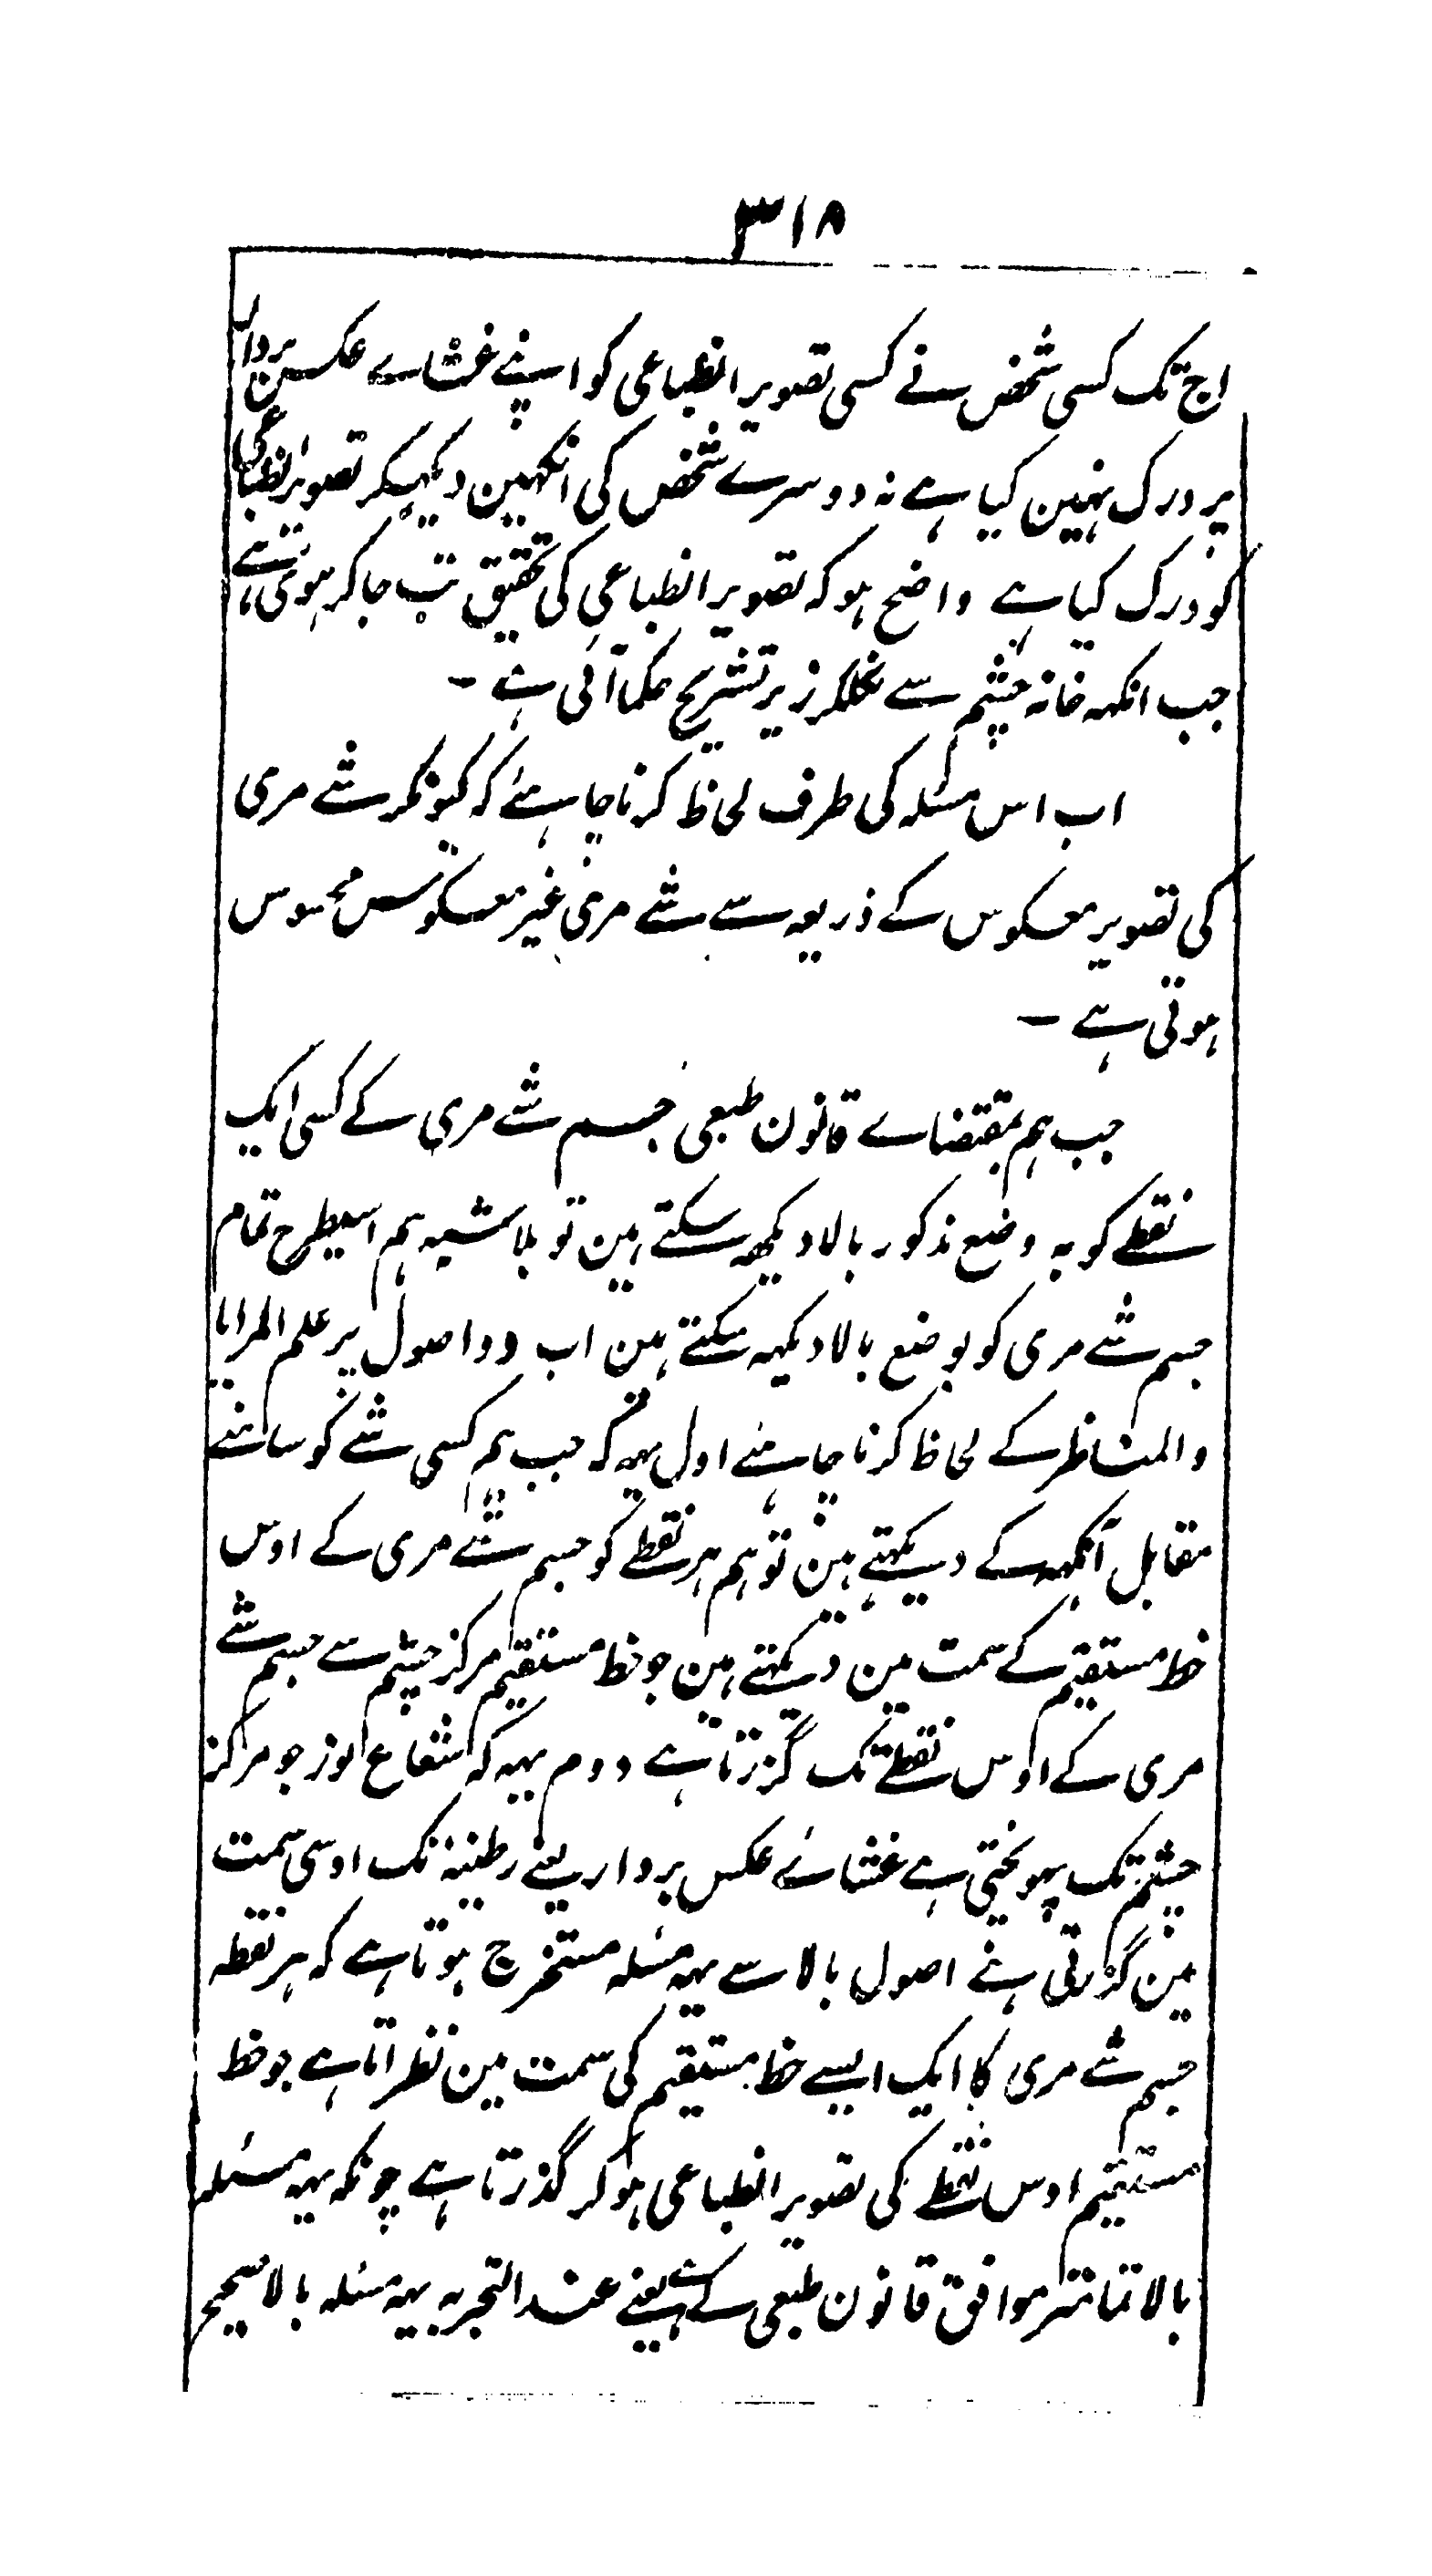 ۳۱۸
اج تک کسی شخض نے کسی تصویر انطباعی کو اپنے غشاے عکس بردار
پر درک نہین کیا ہے نہ دوسرے شخض کی انکہین دیکہکر تصویر انطباعی
کو درک کیا ہے واضح ہو کہ تصویر انطباعی کی تحقیق تب جا کر ہوی ہے
جب انکہہ خانہ چشم سے نکلکر زیر تشریح حکما آئی ہے ۔
اب اس مسئلہ کی طرف لحاظ کرنا چاہئے کہ کیونکر شے مری
کی تصویر معکوس کے ذریعہ سے شے مری غیر معکوس محسوس
ہوتی ہے ۔
جب ہم بمقتضاے قانون طبعی جسم شے مری کے کسی ایک
نقطے کو بہ وضع مذکور بالا دیکھہ سکتے ہین تو بلا شبہ ہم اسیطرح تمام
جسم شے مری کو بوضع بالا دیکہہ سکتے ہین اب دو اصول پر علم المرایا
و المناظر کے لحاظ کرنا چاہئے اول یہہ کہ جب ہم کسی شے کو سامنے
مقابل آنکہہ کے دیکہتے ہین تو ہم ہر نقطے کو جسم شے مری کے اوس
خط مستقیم کے سمت مین دیکہتے ہین جو خط مستقیم مرکز چشم سے جسم شے
مری کے اوس نقطے تک گزرتا ہے دوم یہہ کہ شعاع نور جو مرکز
چشم تک پہونختی ہے غشاے عکس بردار یعنے رطینہ تک اوسی سمت
مین گزرتی ہے اصول بالا سے یہہ مسئلہ مستخرج ہوتا ہے کہ ہر نقطہ
جسم شے مری کا ایک ایسے خط مستقیم کی سمت مین نظر اتا ہے جو خط
مستقیم اوس نقطے کی تصویر انطباعی ہو کر گذرتا ہے چونکہ یہہ مسئلہ
بالا تمامتر موافق قانون طبعی کے ہے یعنے عند التجربہ یہہ مسئلہ بالا صحیح